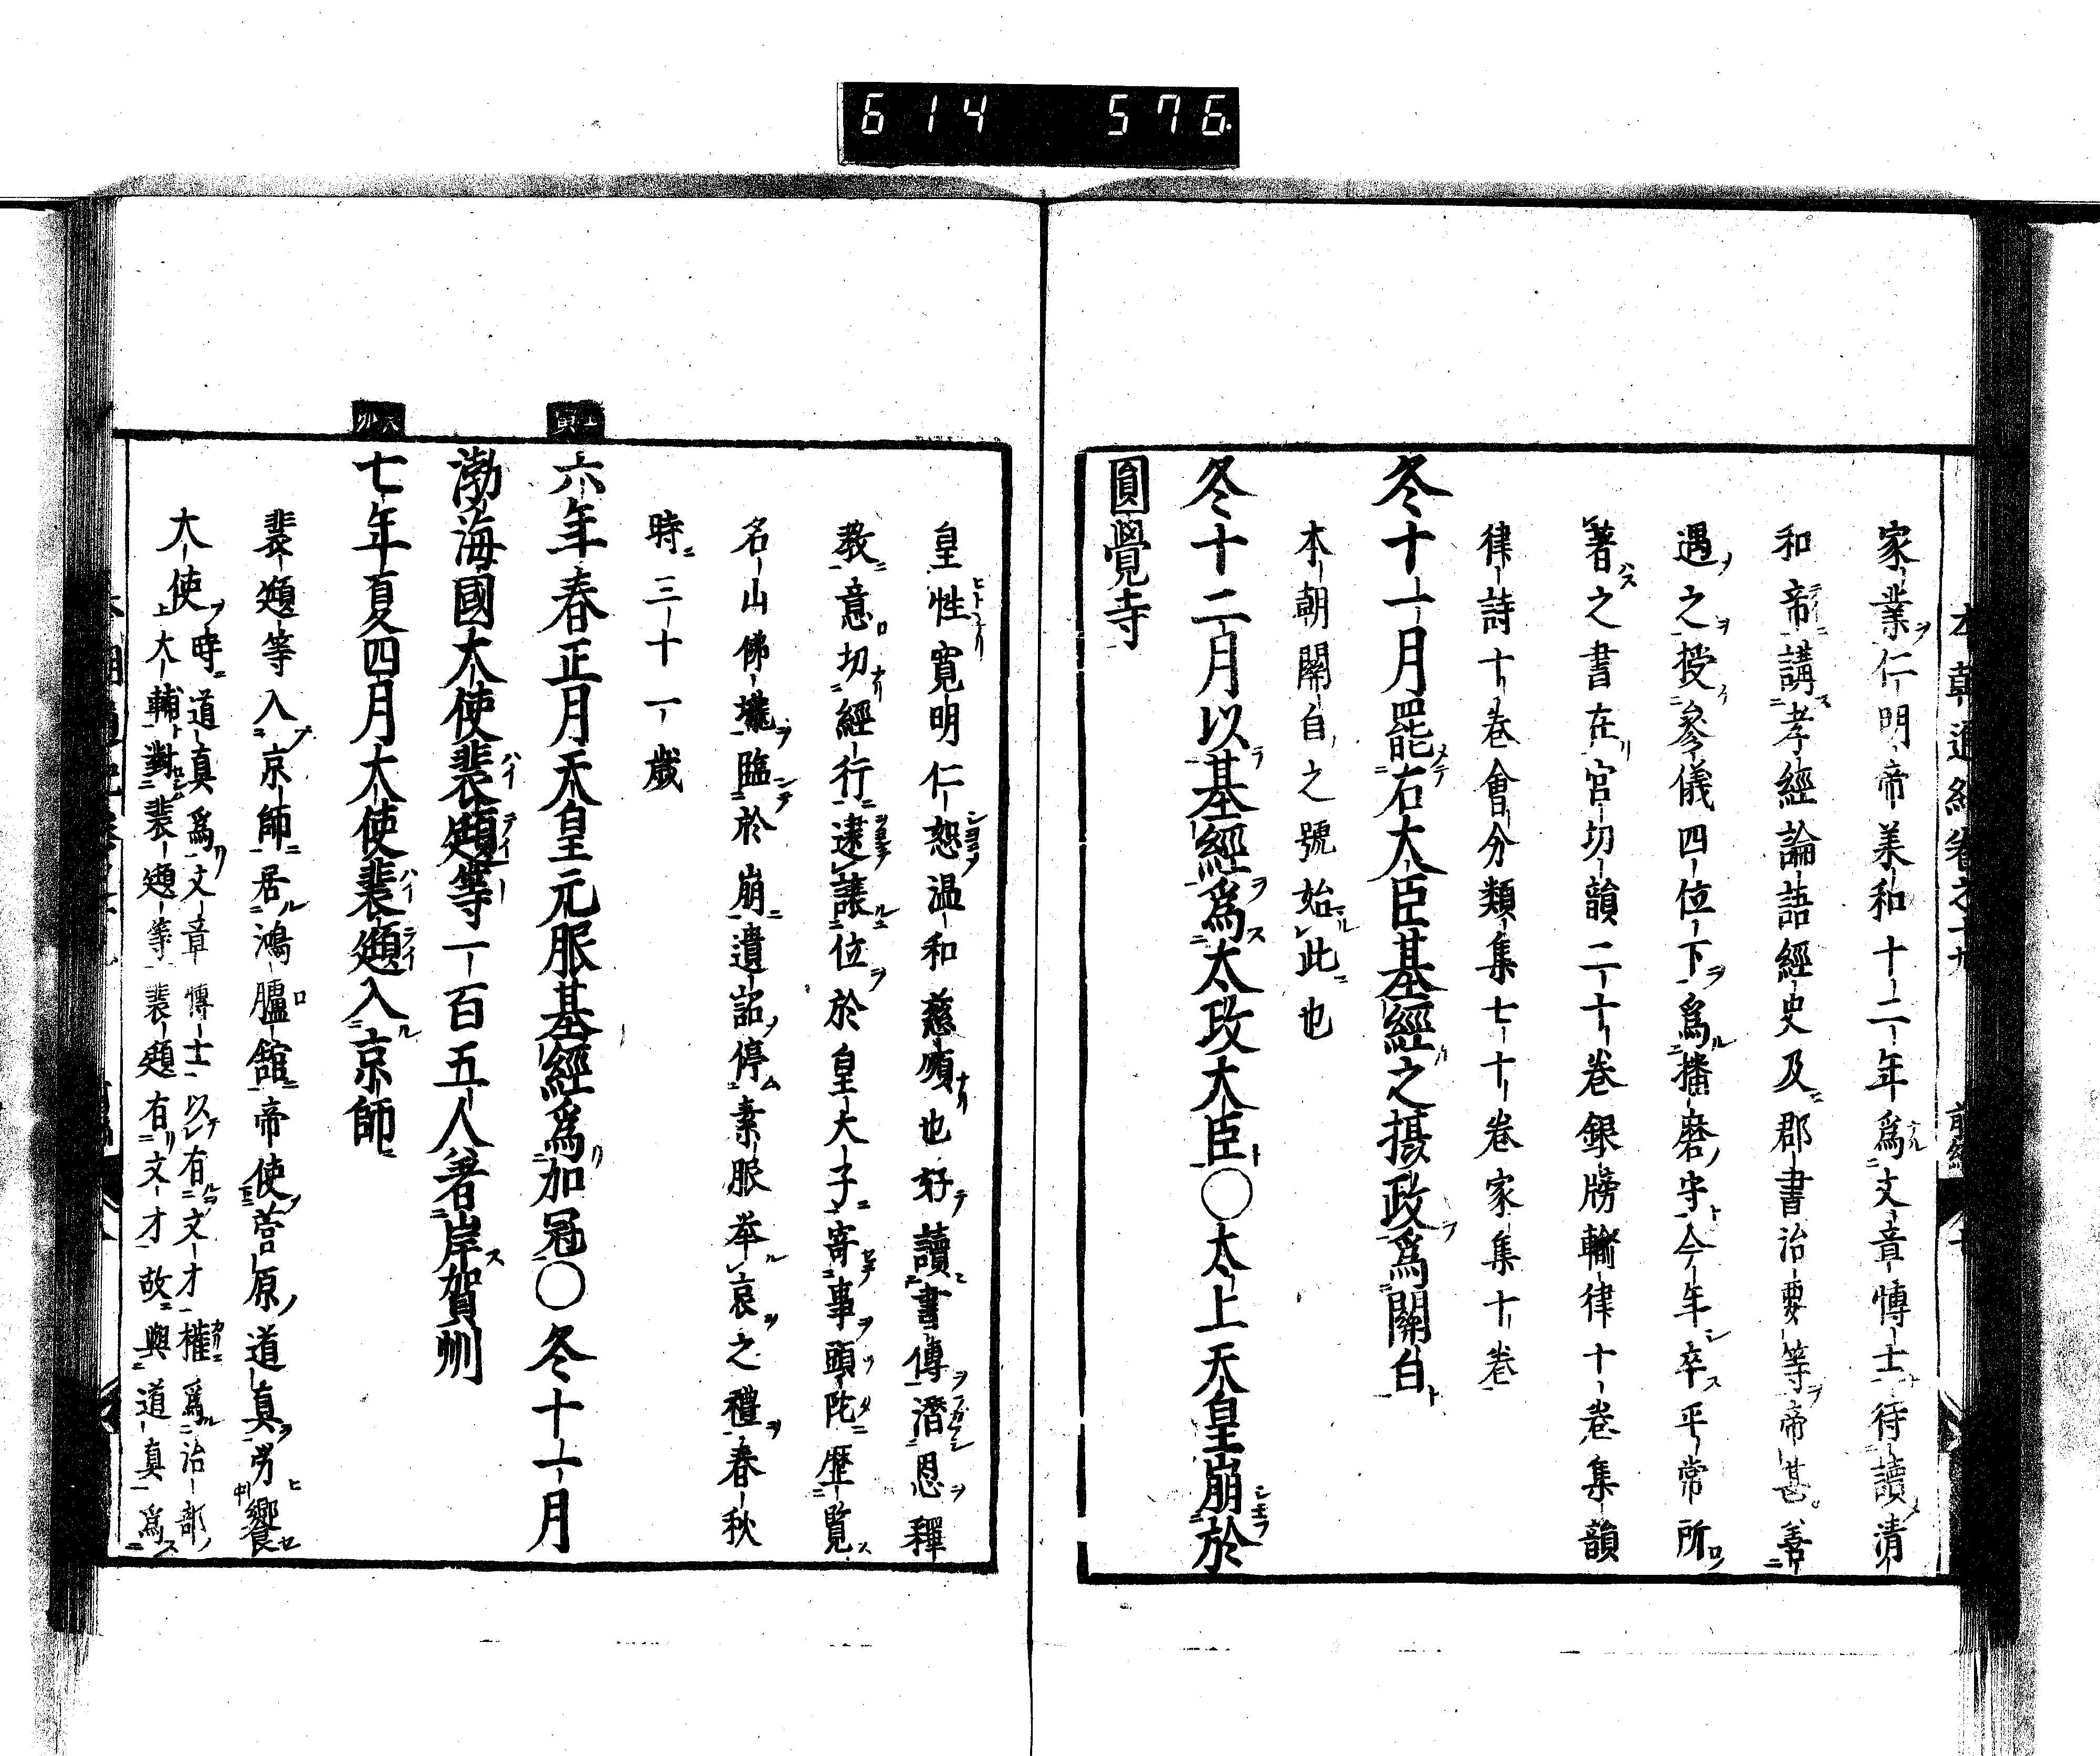 614 576
家業仁明帝美和十二年爲文章博士待讀清
和帝講孝經論語經史及郡書治要等帝甚善
遇之授參儀四位下爲播磨守今年卒平常所
著之書在官切韻二十卷銀牓輸律十卷集韻
律詩十卷會分類集七十卷家集十卷
冬十一月罷右大臣基經之摂政爲關白
本朝關自之號始此也
冬十二月以基經爲太政大臣○太上天皇崩於
圓覺寺
皇性寛明仁恕温和慈順也好讀書傳潛思釋
教意切經行遂讓位於皇大子寄事頭陀歴覧
名山佛壠臨於崩遺詔停素服举哀之禮春秋
時三十一歳
六年春正月天皇元服基經爲加冠○冬十一月
渤海國大使裴頲等一百五人著岸賀州
七年夏四月大使裴頲入京師
裴頲等入京師居鴻臚舘帝使菅原道真労饗
大使時道真爲文章博士以有文才權爲治部
大輔對裴頲等裴頲有文才故與道真爲